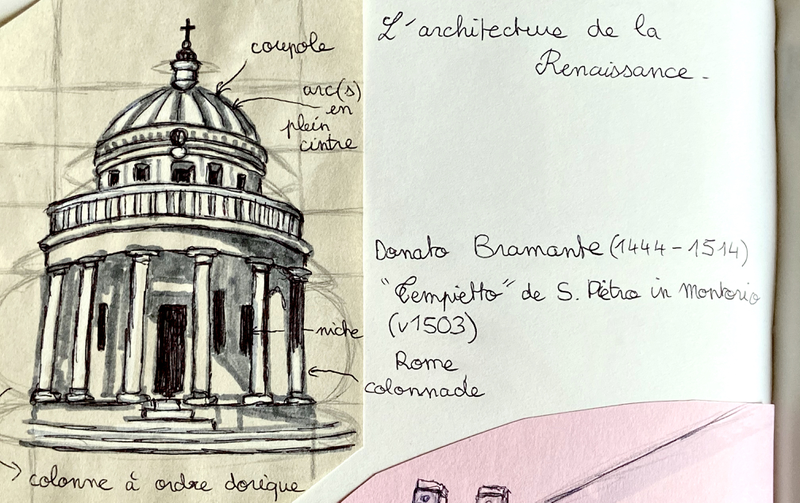 L'architecture de la
Renaissance.
coupole
arc(s)
en
plein
cintre
Donato Bramante (1444-1514)
"Tempietto" de S. Pietro in Montorio
(v1503)
Rome
niche
colonnade
colonne à ordre dorique